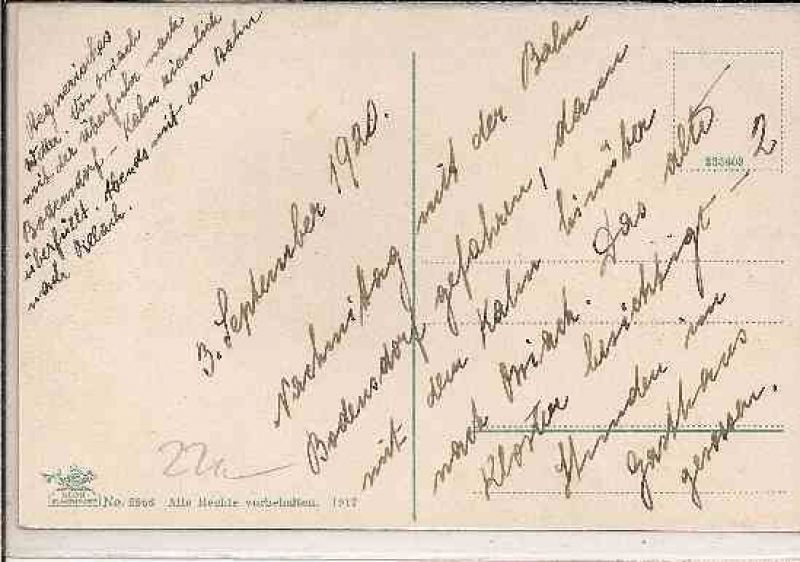 3. September 1920.
Nachmittag mit der Bahn
Bodensdorf gefahren, dann
mit dem Kahn hinüber
nach Ossiach. Das alte
Kloster besichtigt – 2
Stunden im
Gasthaus
gesessen.
Regnerisches
Wetter. Von Ossiach
mit der Überfuhr nach
Bodensdorf – Kahn ziemlich
überfüllt. Abends mit der Bahn
nach Villach.
22a
No. 2966 Alle Rechte vorbehalten. 1917